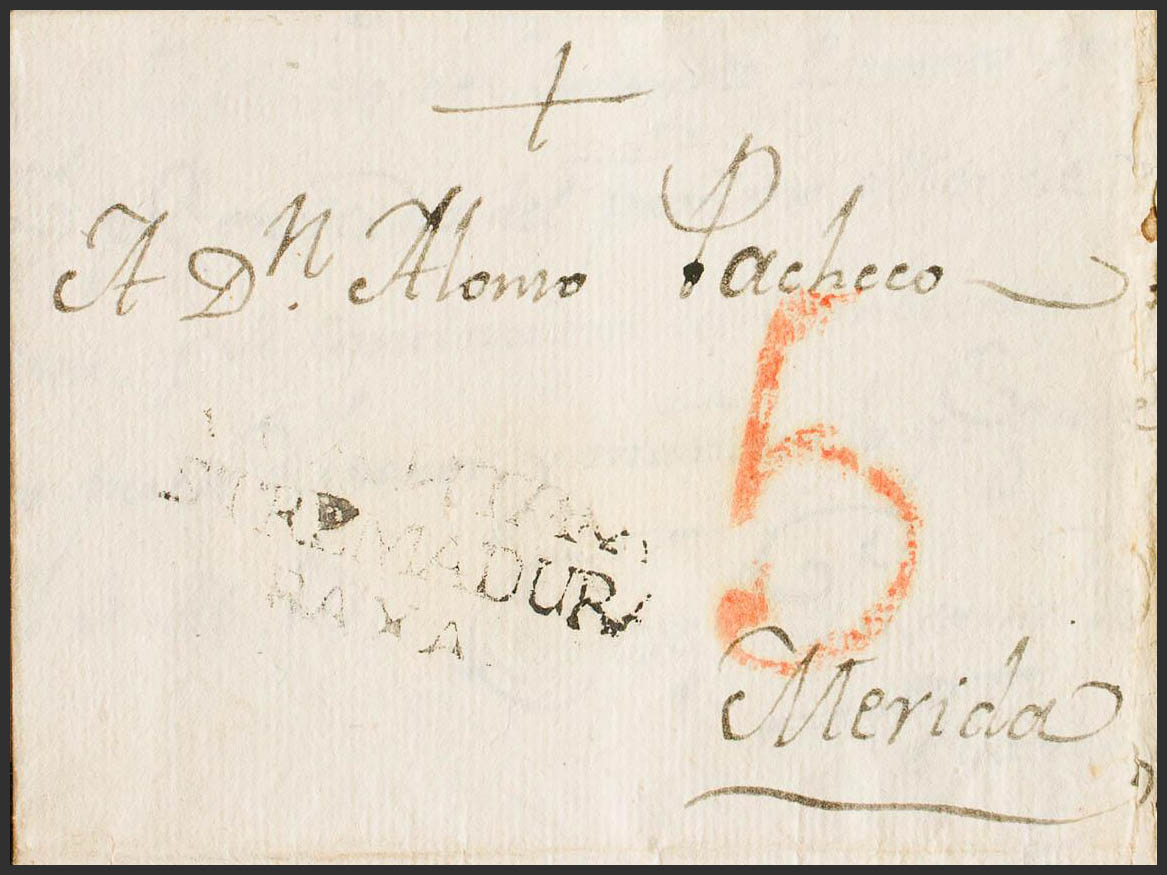 +
A Dⁿ. Alonso Pacheco
5
STREMADURA
RAYA
Merida